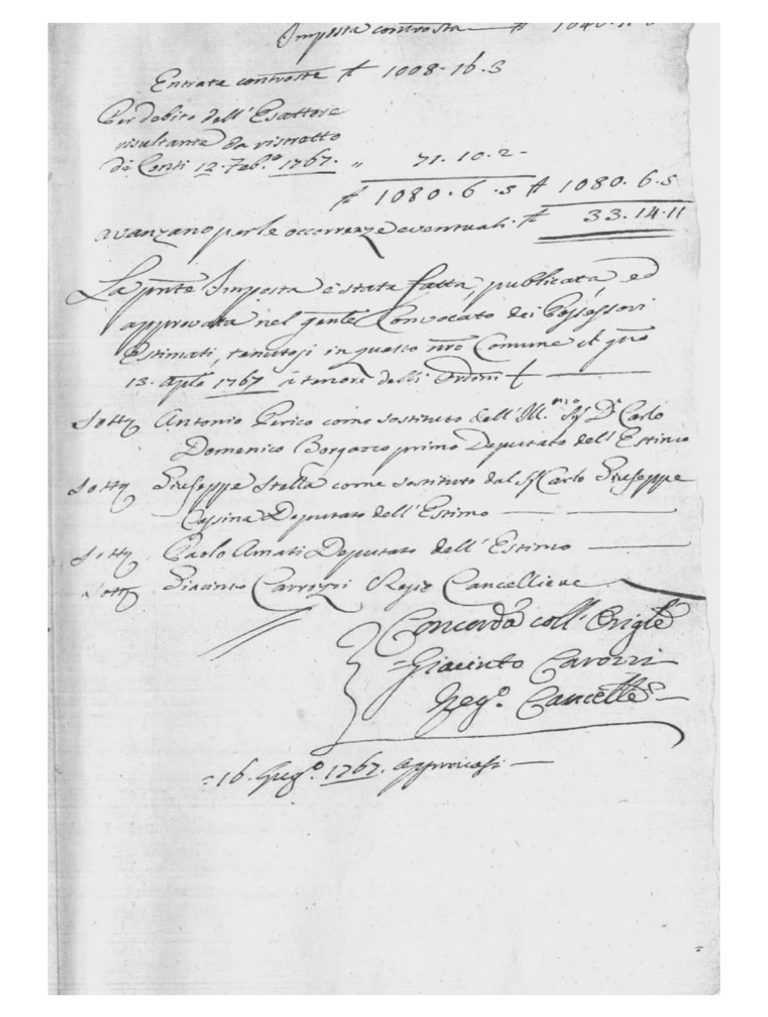 Imposta controsta £ 1046.11.6
Entrata controste £ 1008.16.3
Per debito dell'Esattore
risultante da ristretto
de Conti 12. Feb.º 1767. " 71.10.2
£ 1080.6.5 £ 1080.6.5
avanzano per le occorrenze eventuali £ 33.14.11
La pnte Imposta è stata fatta, publicata, ed
approvata nel genle Convocato dei Possessori
Estimati, tenutosi in questo nro Comune il gno
13. aple 1767 à tenore delli Ordini
Sottº Antonio Perico come sostituto dell'Ill.mo Sigr Dr Carlo
Domenico Borgazzo primo Deputato dell'Estimo
Sottº Giuseppe Stella come sostituto dal Sigr Carlo Giuseppe
Cassina Deputato dell'Estimo
Sottº Paolo Amati Deputato dell'Estimo
Sottº Giacinto Carozzi Regio Cancelliere
Concorda coll'Origle
Giacinto Carozzi
Regº. Cancelle
= 16. Giugº. 1767. approvasi